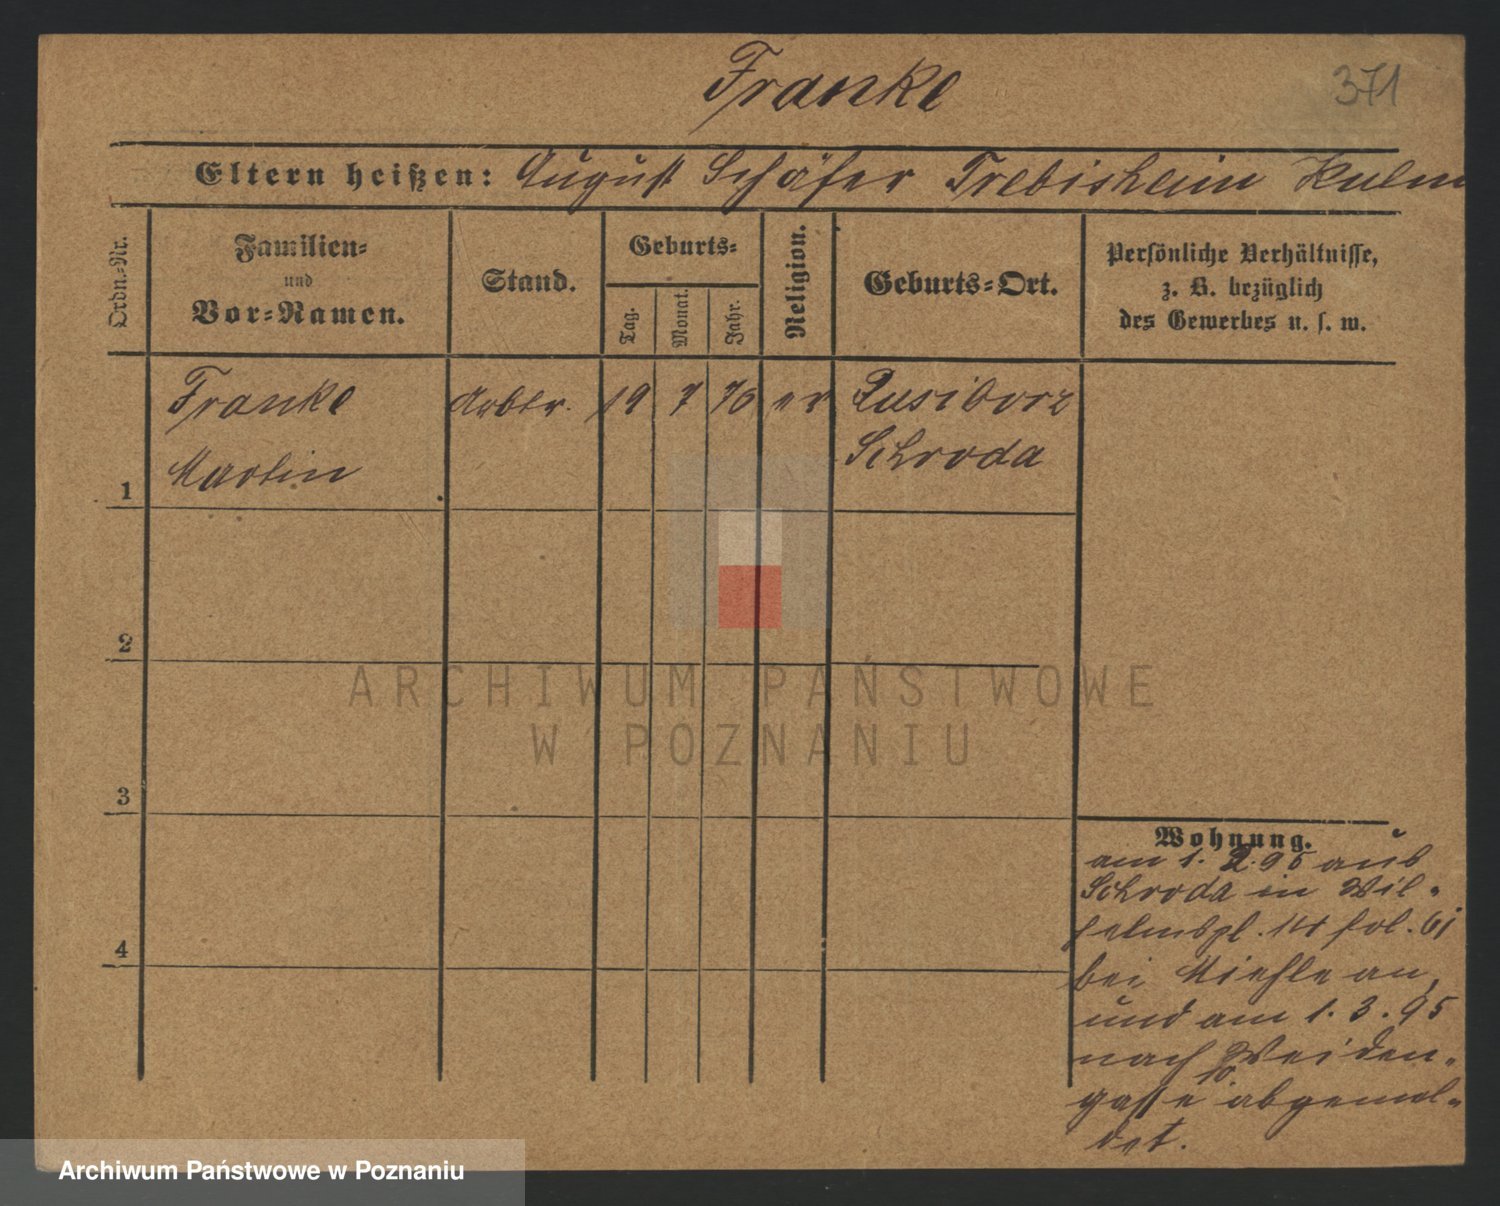 Franke
371
Eltern heißen: August Schäfer Trebisheim Kulm
Ordn.-Nr.
Familien-
und
Vor-Namen.
Stand.
Geburts-
Tag.
Monat.
Jahr.
Religion.
Geburts-Ort.
Persönliche Verhältnisse,
z. B. bezüglich
des Gewerbes u. s. w.
Franke Arbtr. 19 7 76 ev
Schroda
Martin
1
2
ARCHIWUM PAŃSTWOWE
W POZNANIU
3
4
Wohnung.
am 1. 2. 95 aus
Schroda in Wil-
helmspl. 14 fol. 61
bei an,
und am 1. 3. 95
nach Weiden-
gasse abgemel-
det.
Archiwum Państwowe w Poznaniu